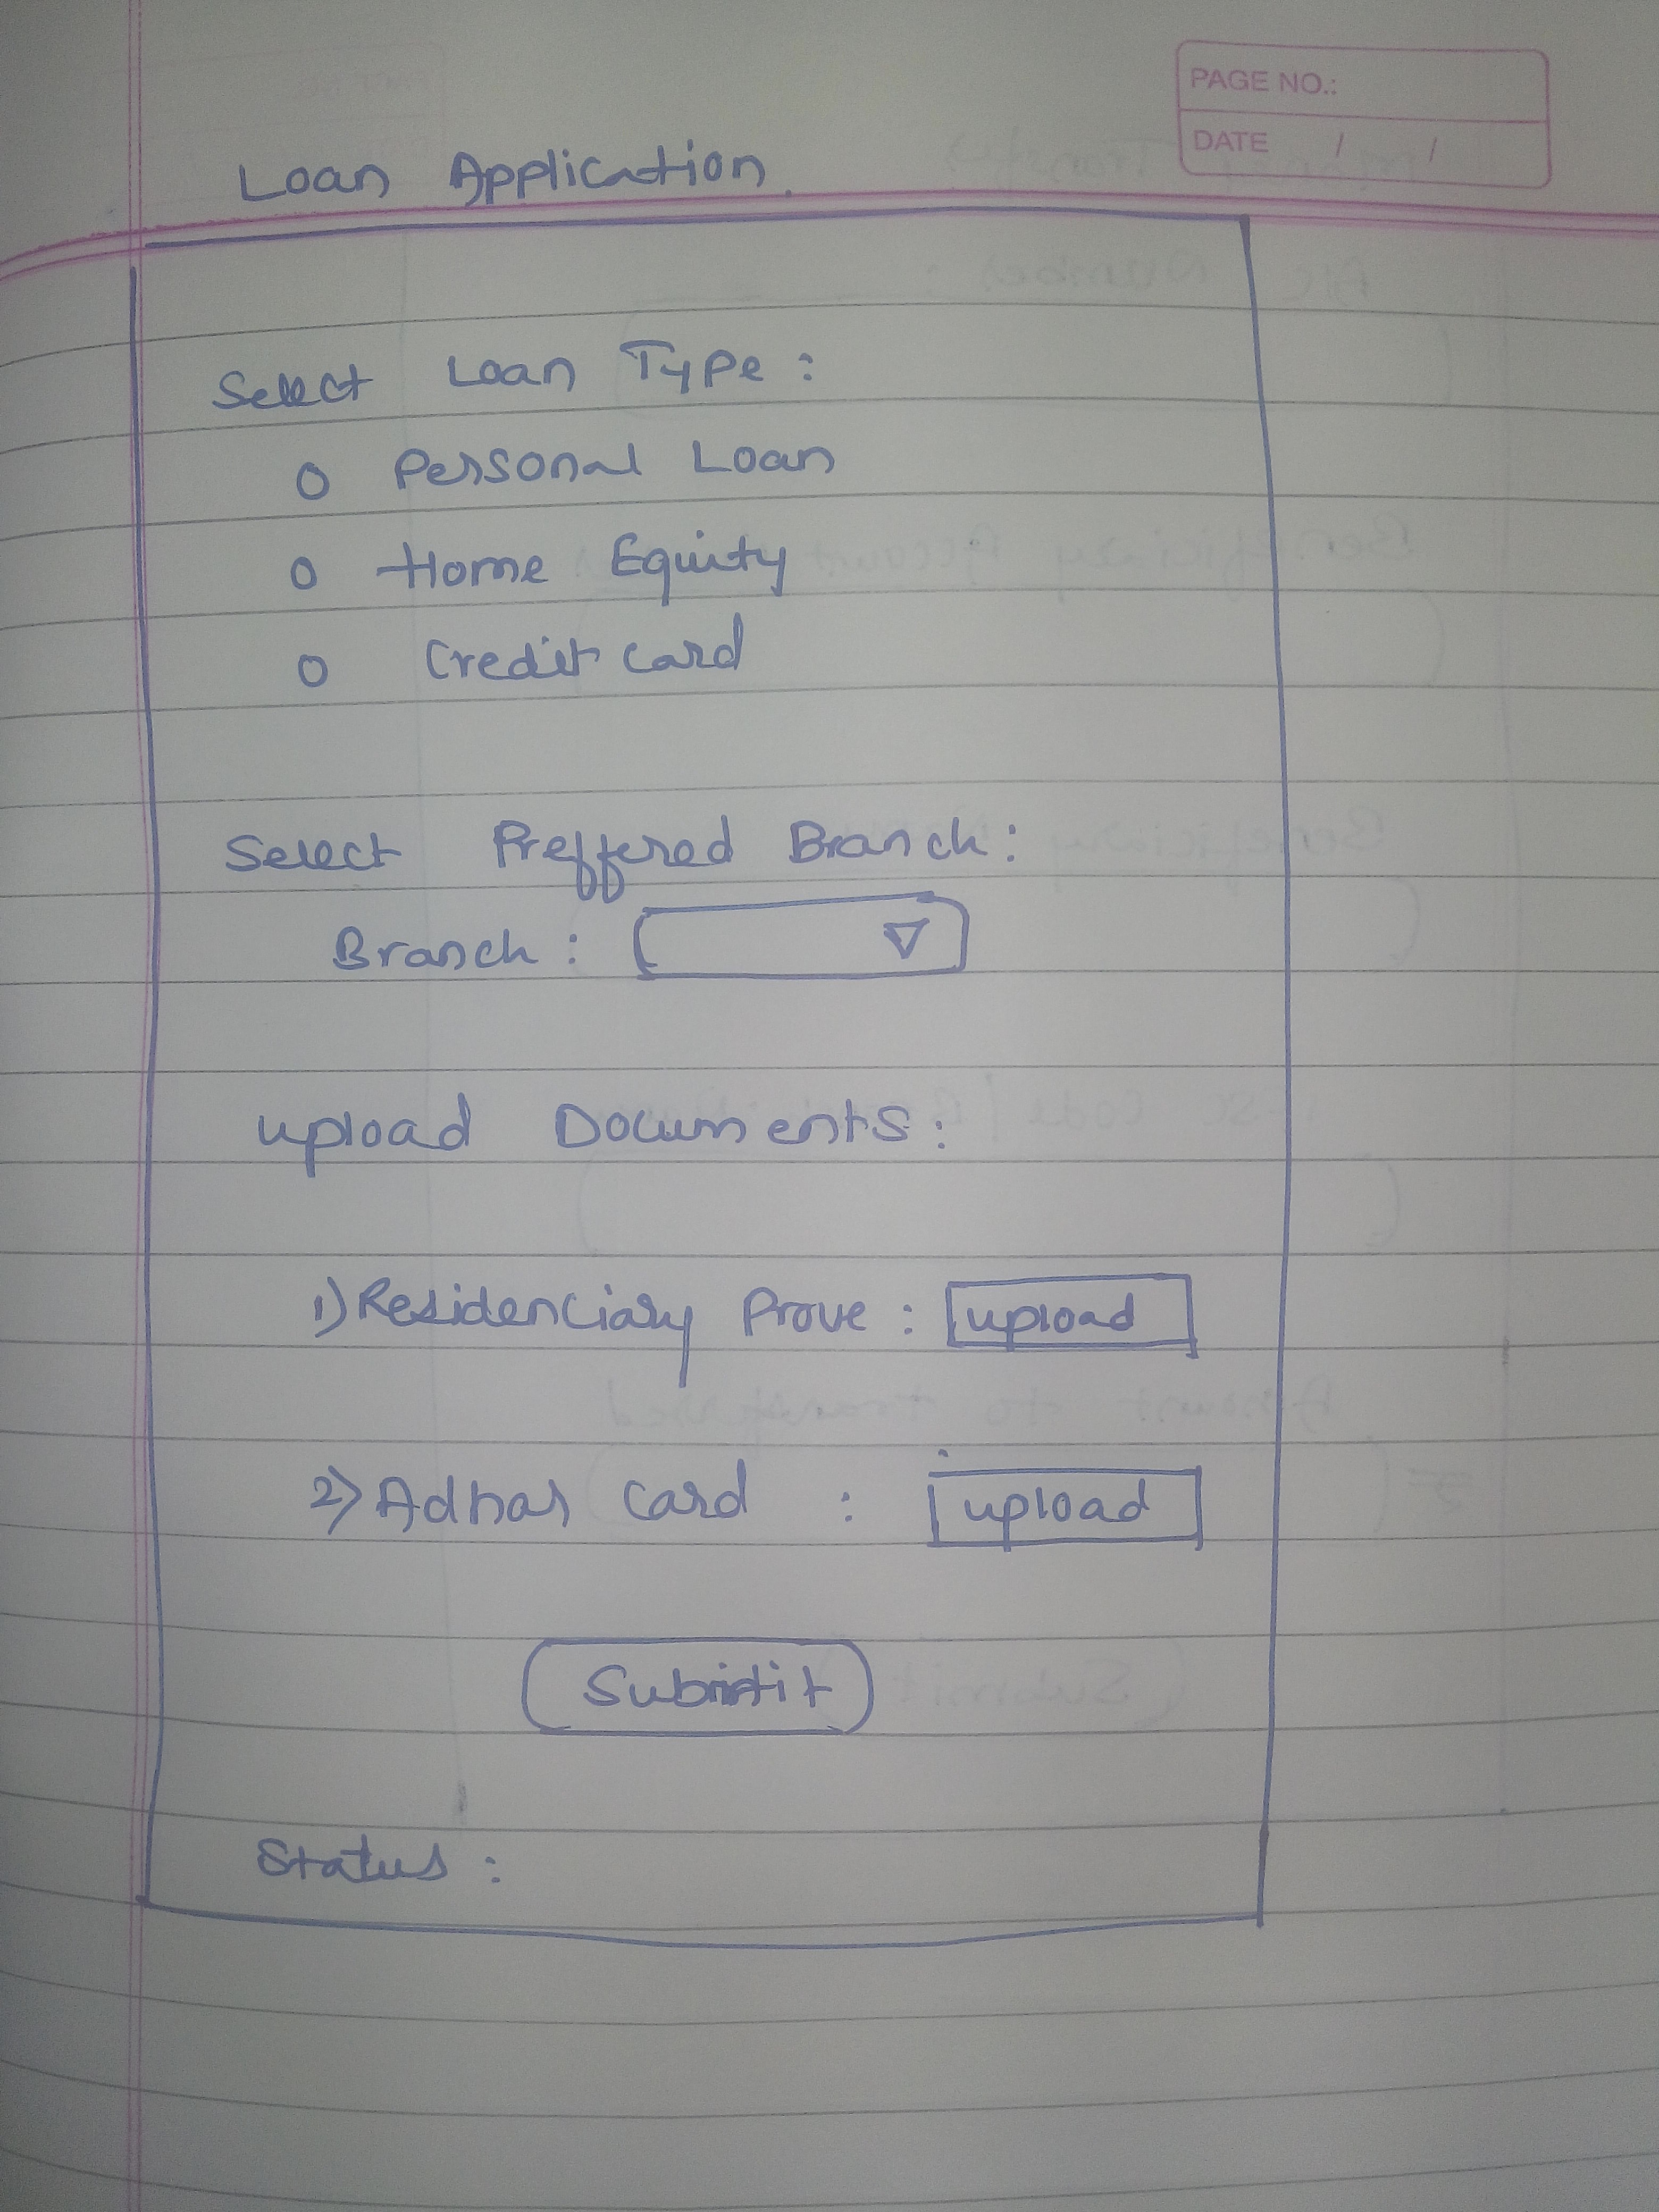 PAGE NO.:
DATE / /
Loan Application.
Select Loan Type :
o Personal Loan
o Home Equity
o Credit card
Select Preffered Branch :
Branch : ▽
upload Documents :
1) Residenciary Prove : upload
2) Adhar Card : upload
Submit
Status :